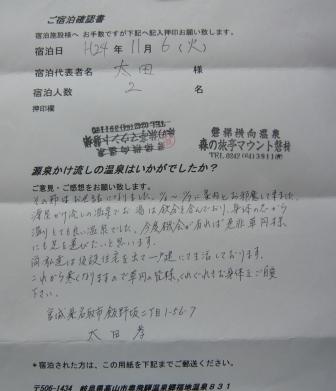 ご宿泊確認書
宿泊施設様へ お手数ですが下記へ記入押印お願い致します。
宿泊日 H24年11月6(火)
宿泊代表者名 太田 様
宿泊人数 2 名
押印欄
磐梯横向温泉
森の旅亭マウント磐梯
TEL 0242 (64) 3911
源泉かけ流しの温泉はいかがでしたか？
ご意見・ご感想をお願い致します。
その節はお世話になりました。
源泉かけ流しの温泉でお湯は鉄分を含んでおり、身体の芯から
温りとても良い温泉でした。今度機会が有れば是非草円様
にも足を運びたいと思います。
これから寒くなりますので草円の皆様、くれぐれもお身体をご自愛
下さい。
宮城県名取市飯野坂二丁目1-56-7
太田 孝
*宿泊された方は、この用紙を下記までご郵送ください。
〒506-1434 岐阜県高山市奥飛騨温泉郷福地温泉831